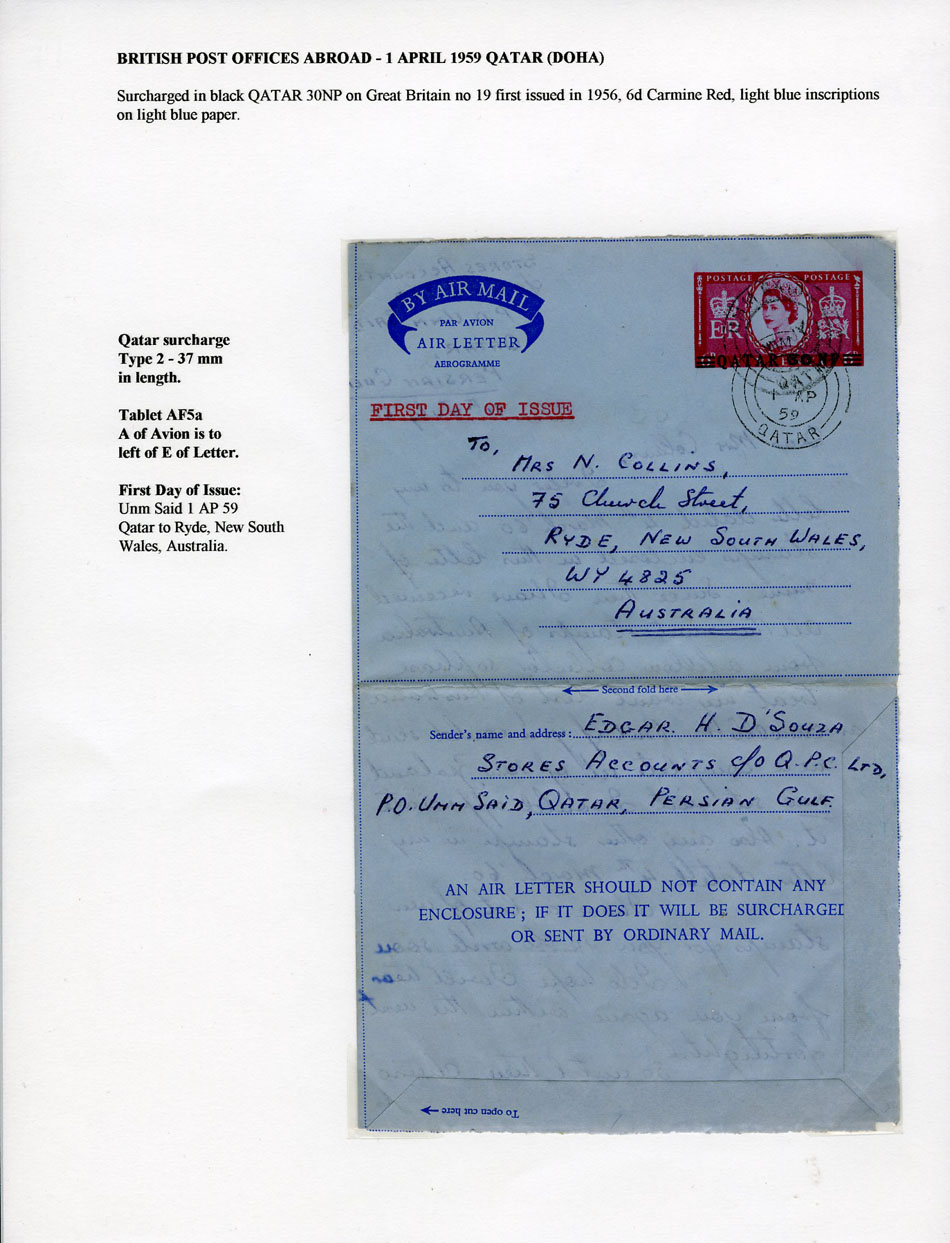 BRITISH POST OFFICES ABROAD - 1 APRIL 1959 QATAR (DOHA)
Surcharged in black QATAR 30NP on Great Britain no 19 first issued in 1956, 6d Carmine Red, light blue inscriptions
on light blue paper.
Qatar surcharge
Type 2 - 37 mm
in length.
Tablet AF5a
A of Avion is to
left of E of Letter.
First Day of Issue:
Unm Said 1 AP 59
Qatar to Ryde, New South
Wales, Australia.
BY AIR MAIL
PAR AVION
AIR LETTER
AEROGRAMME
POSTAGE POSTAGE
E R
QATAR 30 NP
1 AP
59
QATAR
FIRST DAY OF ISSUE
To,
MRS N. COLLINS,
75 Church Street,
RYDE, NEW SOUTH WALES,
WY 4825
AUSTRALIA
Second fold here
Sender's name and address: EDGAR. H. D'SOUZA
STORES ACCOUNTS c/o Q.P.C. LTD,
P.O. UMM SAID, QATAR, PERSIAN GULF.
AN AIR LETTER SHOULD NOT CONTAIN ANY
ENCLOSURE ; IF IT DOES IT WILL BE SURCHARGED
OR SENT BY ORDINARY MAIL.
To open cut here